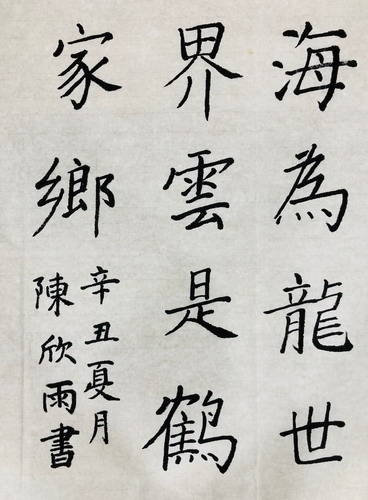 海為龍世
界雲是鶴
家鄉
辛丑夏月
陳欣雨書